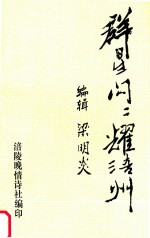 群星闪闪耀涪州
编辑 梁明炎
涪陵晚情诗社编印